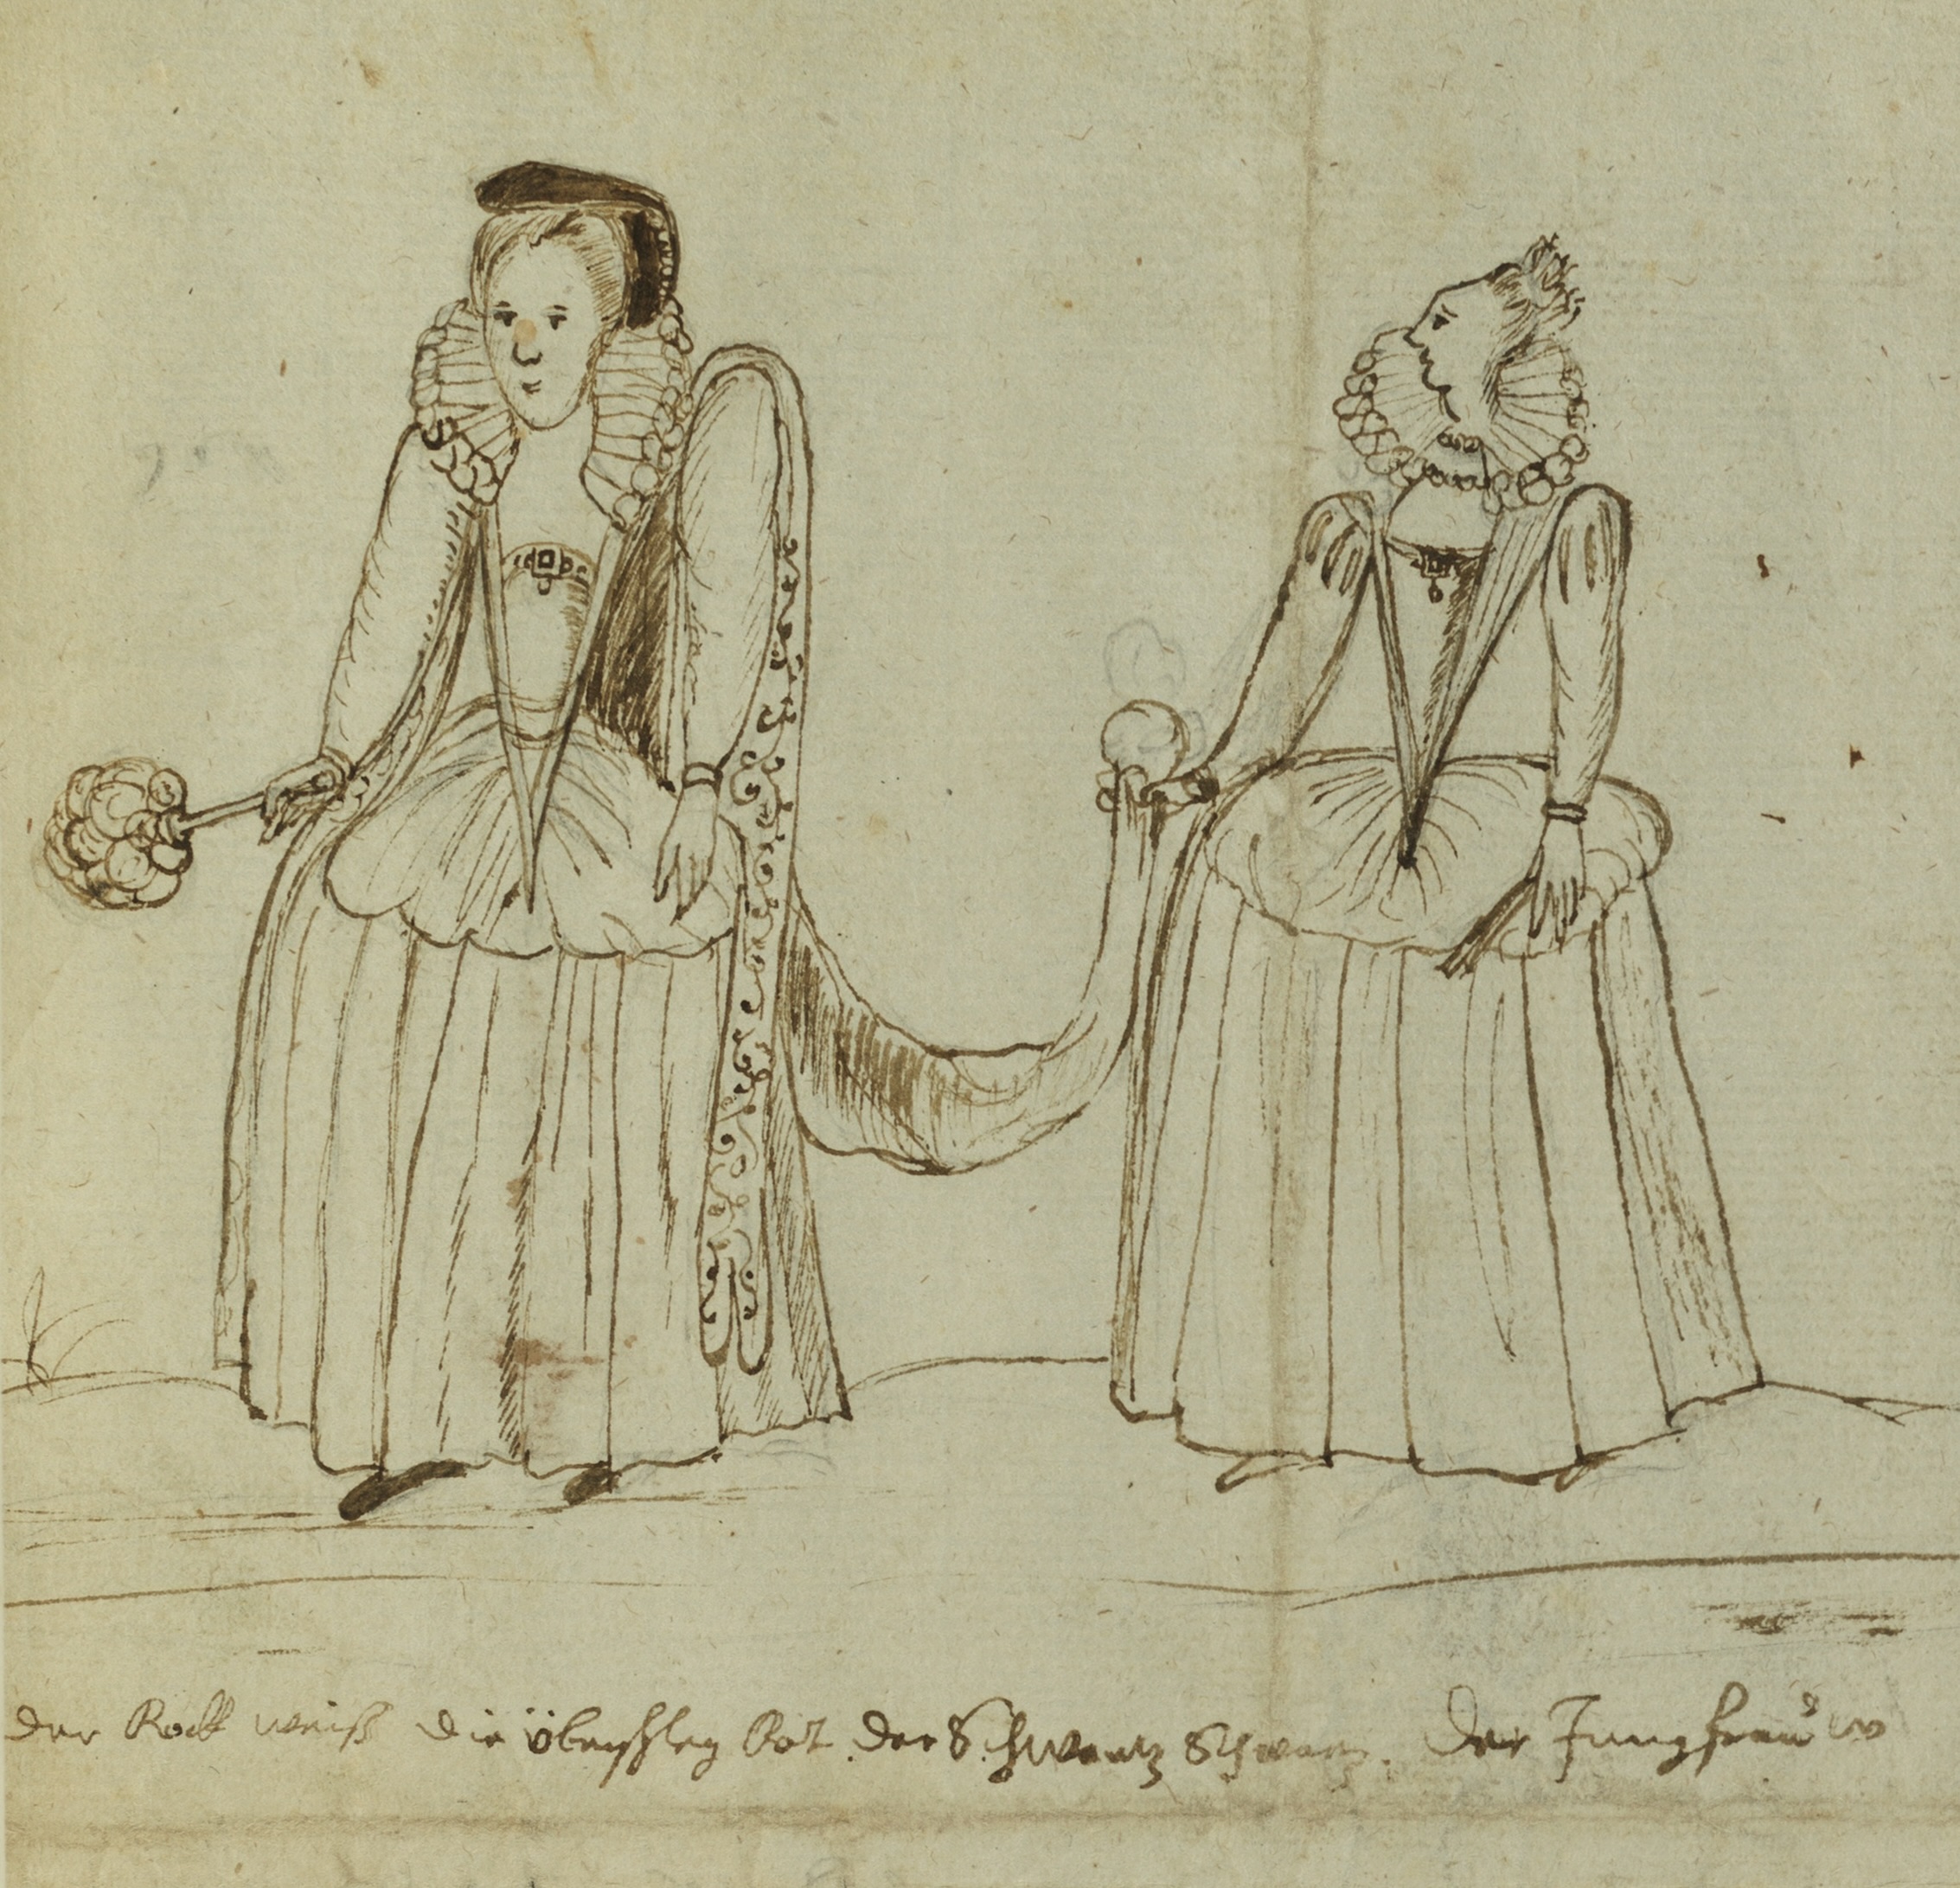 der Rock weiß die überschleg Rot. der Schwantz Schwartz. Der Jungfrauw